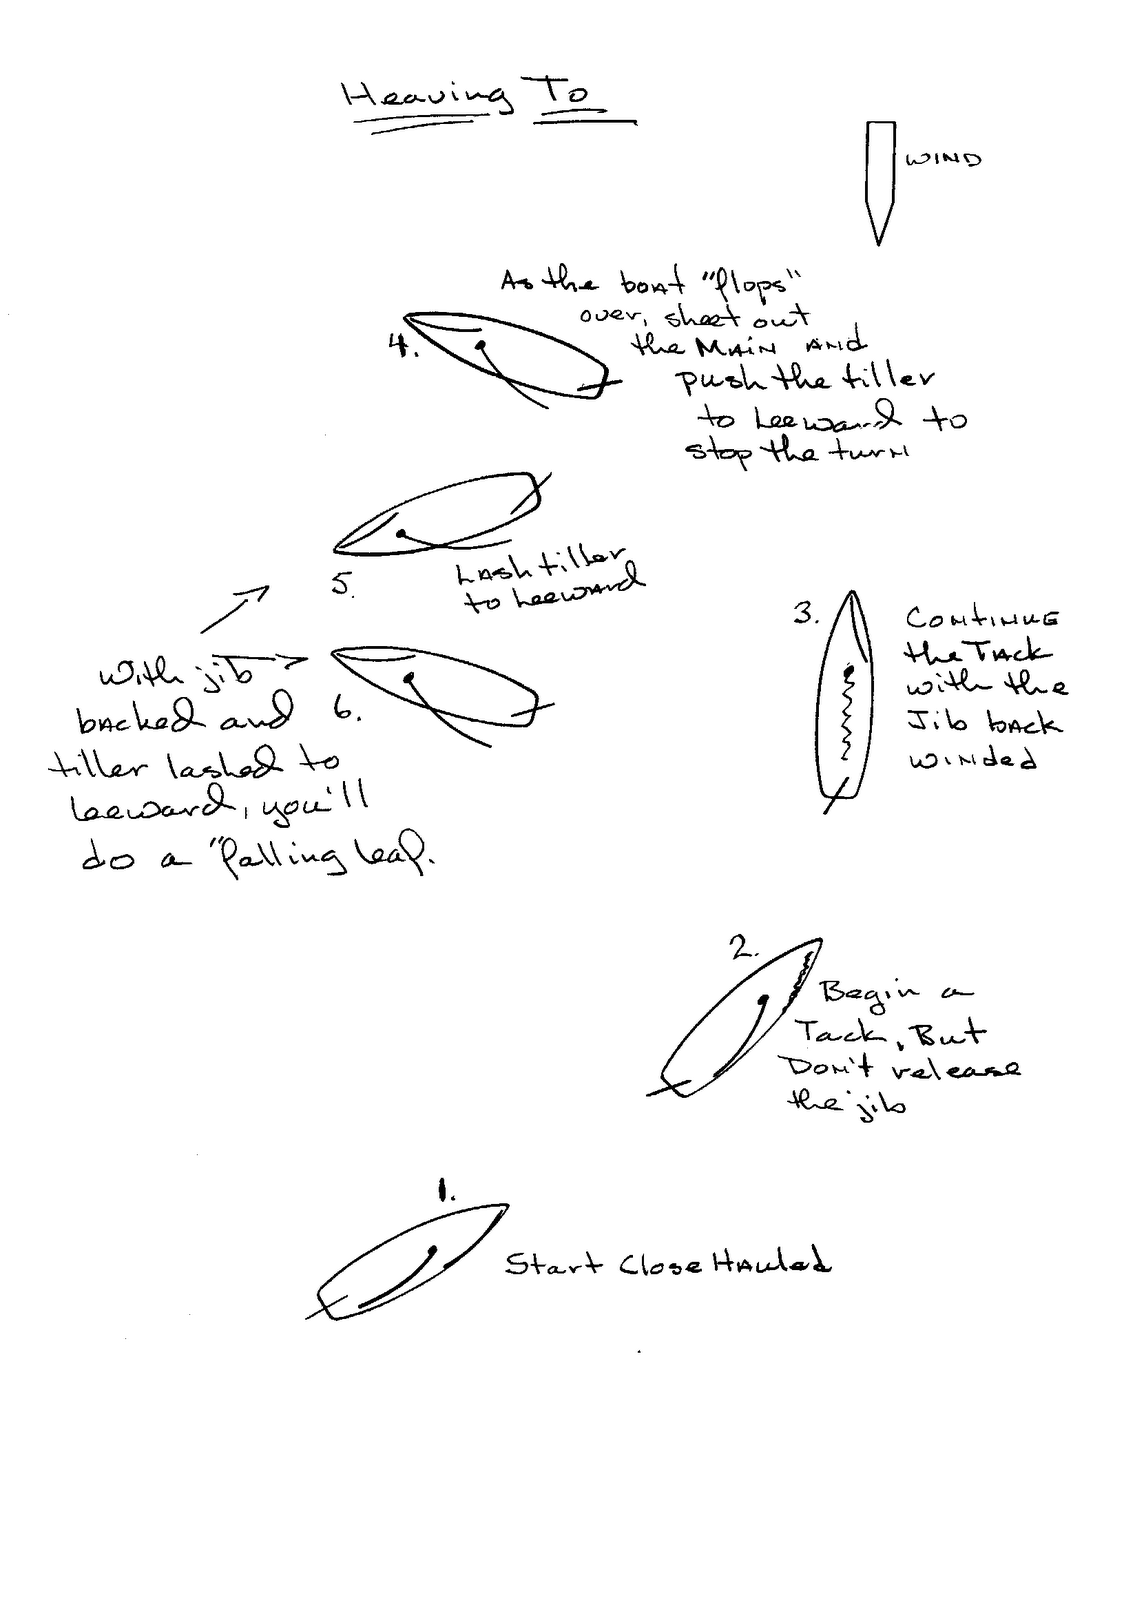 Heaving To
WIND
4.
As the boat "flops"
over, sheet out
the MAIN AND
push the tiller
to Leeward to
stop the turn
5.
LAsh tiller
to Leeward
With jib
backed and
tiller lashed to
Leeward, you'll
do a "falling leaf.
6.
3.
CONTINUE
the TACK
with the
Jib back
winded
2.
Begin a
Tack, But
Don't release
the jib
1.
Start Close HAuled